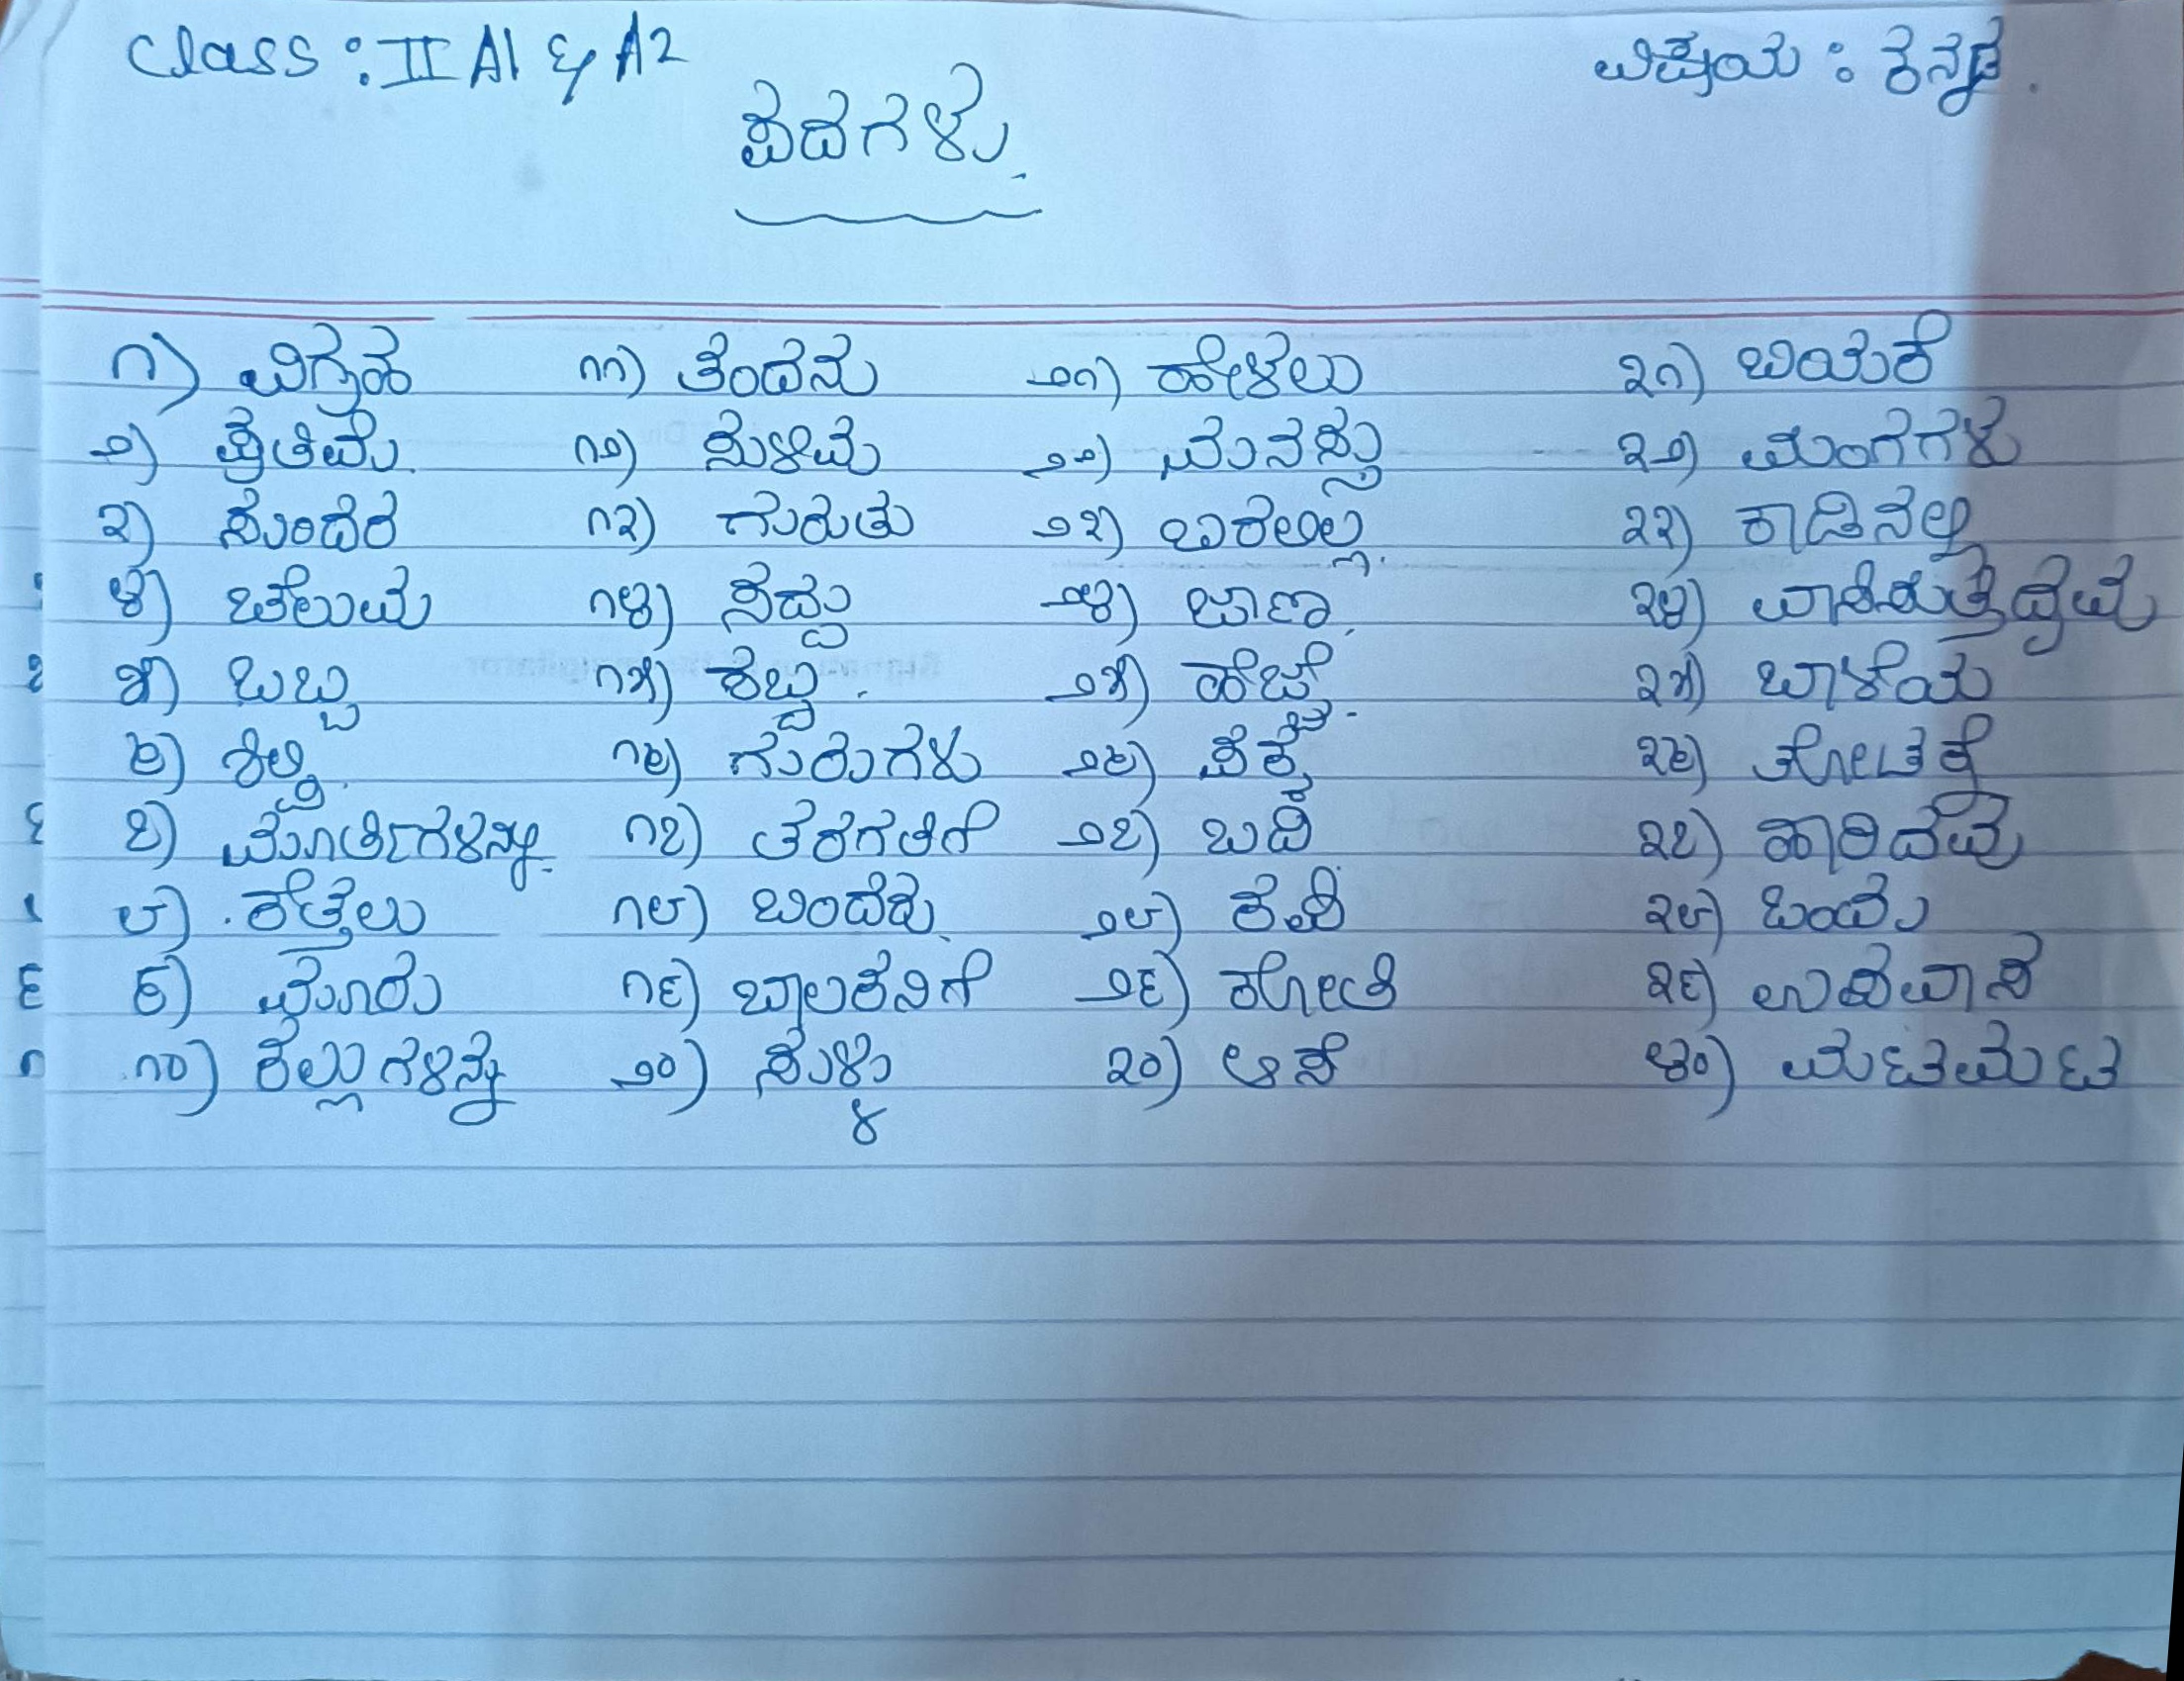 Class : II A1 & A2 ವಿಷಯ : ಕನ್ನಡ.
ಪದಗಳು.
೧) ವಿಗ್ರಹ ೧೧) ತಂದನು ೨೧) ಹೇಳಲು ೩೧) ಬಯಕೆ
೨) ಪ್ರತಿಮೆ. ೧೨) ಸುಳಿವು ೨೨) ಮನಸ್ಸು ೩೨) ಮಂಗಗಳು
೩) ಸುಂದರ ೧೩) ಗುರುತು ೨೩) ಬರಲಿಲ್ಲ. ೩೩) ಕಾಡಿನಲ್ಲಿ
೪) ಚೆಲುವ ೧೪) ಸದ್ದು ೨೪) ಜಾಣ. ೩೪) ವಾಸಿಸುತ್ತಿದ್ದವು
೫) ಒಬ್ಬ ೧೫) ಶಬ್ದ. ೨೫) ಹೆಜ್ಜೆ. ೩೫) ಬಾಳೆಯ
೬) ಶಿಲ್ಪಿ. ೧೬) ಗುರುಗಳು ೨೬) ಪಕ್ಕ ೩೬) ತೋಟಕ್ಕೆ
೭) ಮೂರ್ತಿಗಳನ್ನು. ೧೭) ತರಗತಿಗೆ ೨೭) ಬದಿ ೩೭) ಹಾರಿದವು
೮) ಕೆತ್ತಲು ೧೮) ಬಂದರು. ೨೮) ಕಪಿ ೩೮) ಒಂದು
೯) ಮೂರು ೧೯) ಬಾಲಕನಿಗೆ ೨೯) ಕೋತಿ ೩೯) ಉಪವಾಸ
೧೦) ಕಲ್ಲುಗಳನ್ನು ೨೦) ಸುಳ್ಳು ೩೦) ಆಸೆ ೪೦) ಮಟಮಟ